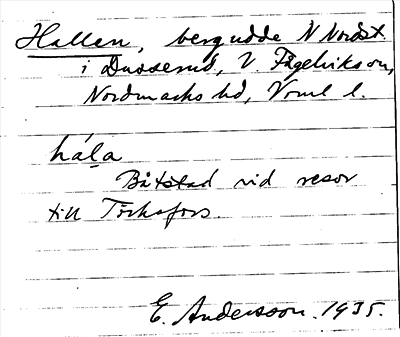 Hallen, bergudde N Nordst.
i Dusserud, V. Fågelviks sn,
Nordmarks hd, Vrml l.
háḷa
Båtstad vid resor
till Törksfors.
E. Andersson. 1935.